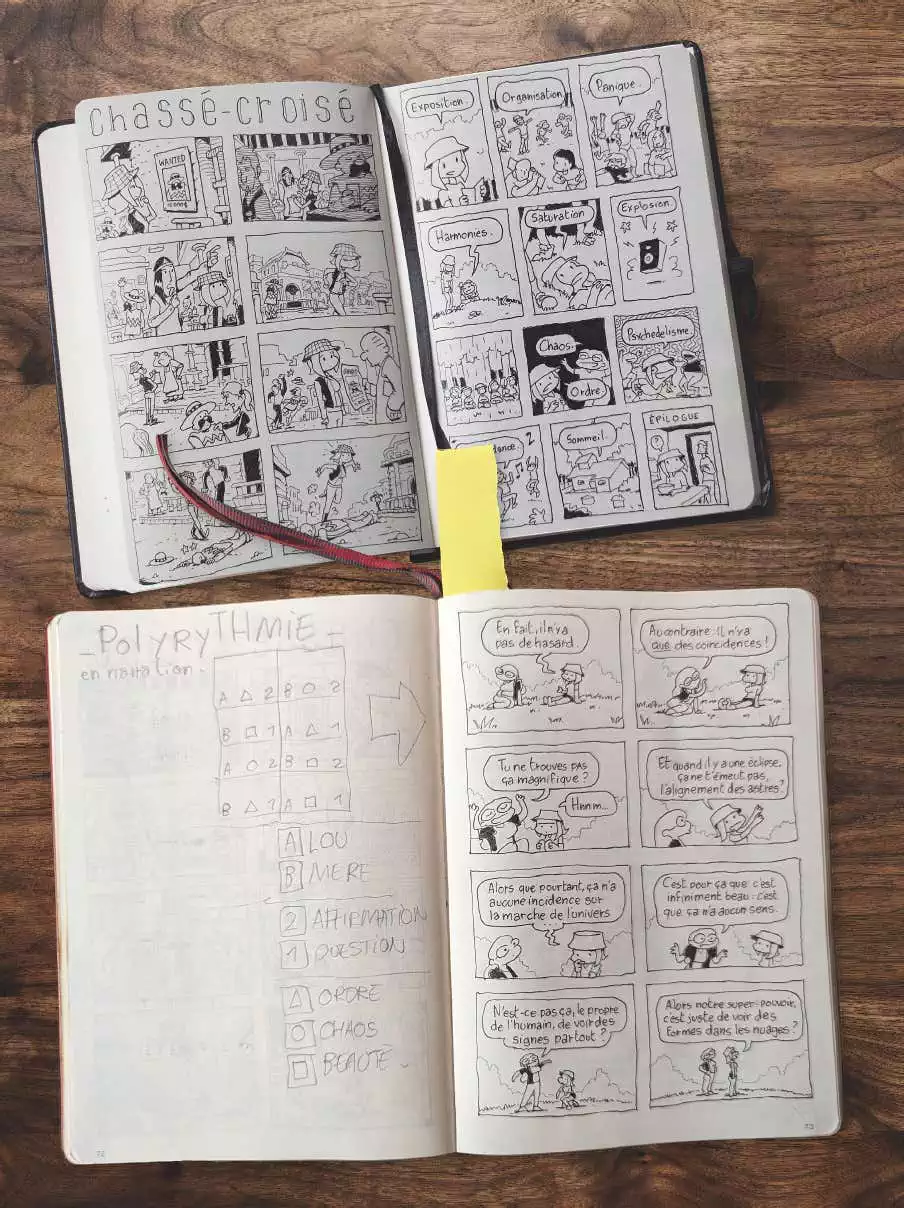 Chassé-croisé
WANTED
Exposition.
Organisation.
Panique.
Harmonies.
Saturation
Explosion.
Chaos.
Ordre
Psychédélisme.
Sommeil.
ÉPILOGUE
?
_PolyryTHMiE_
en narration.
A △ 2 B ○ 2
B □ 1 A △ 1
A ○ 2 B □ 2
B △ 1 A □ 1
A LOU
B MERE
2 AFFIRMATION
1 QUESTION
△ ORDRE
○ CHAOS
□ BEAUTÉ
En fait, il n'y a
pas de hasard.
Au contraire: il n'y a
que des coïncidences!
Tu ne trouves pas
ça magnifique?
Hmm...
Et quand il y a une éclipse,
ça ne t'émeut pas,
l'alignement des astres?
Alors que pourtant, ça n'a
aucune incidence sur
la marche de l'univers
C'est pour ça que c'est
infiniment beau: c'est
que ça n'a aucun sens.
N'est-ce pas ça, le propre
de l'humain, de voir des
signes partout?
Alors notre super-pouvoir,
c'est juste de voir des
formes dans les nuages?
72
73